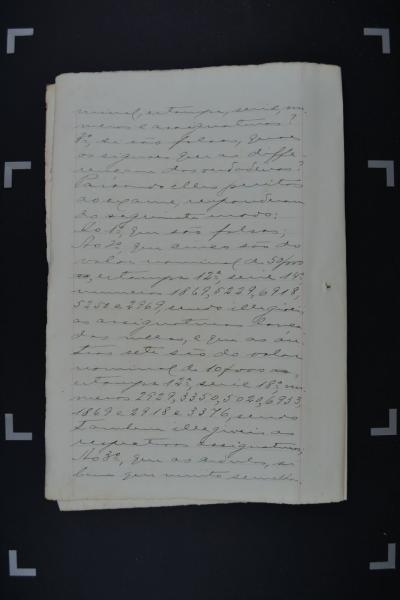 minal, estampa, serie, nu-
meros e assignaturas?
3º, se são falsas, quaes
os signaes que as diffe-
rençam das verdadeiras?
Passando elles peritos
ao exame, responderam
do seguinte modo:
Ao 1º, que são falsas;
Ao 2º, que cinco são do
valor nominal de 50$000
rs, estampa 12ª, serie 14ª
numeros 1869, 5229, 6918,
5250 e 2969, sendo illegiveis
as assignaturas
das nellas, e que as ou-
tras sete são do valor
nominal de 10$000 rs,
estampa 12ª, serie 18ª, nu-
meros 2929, 3350, 5020, 6953,
1869 e 2918 e 3376, sendo
tambem illegiveis as
respectivas assignaturas;
Ao 3º, que as cedulas, se
bem que muito semelha-